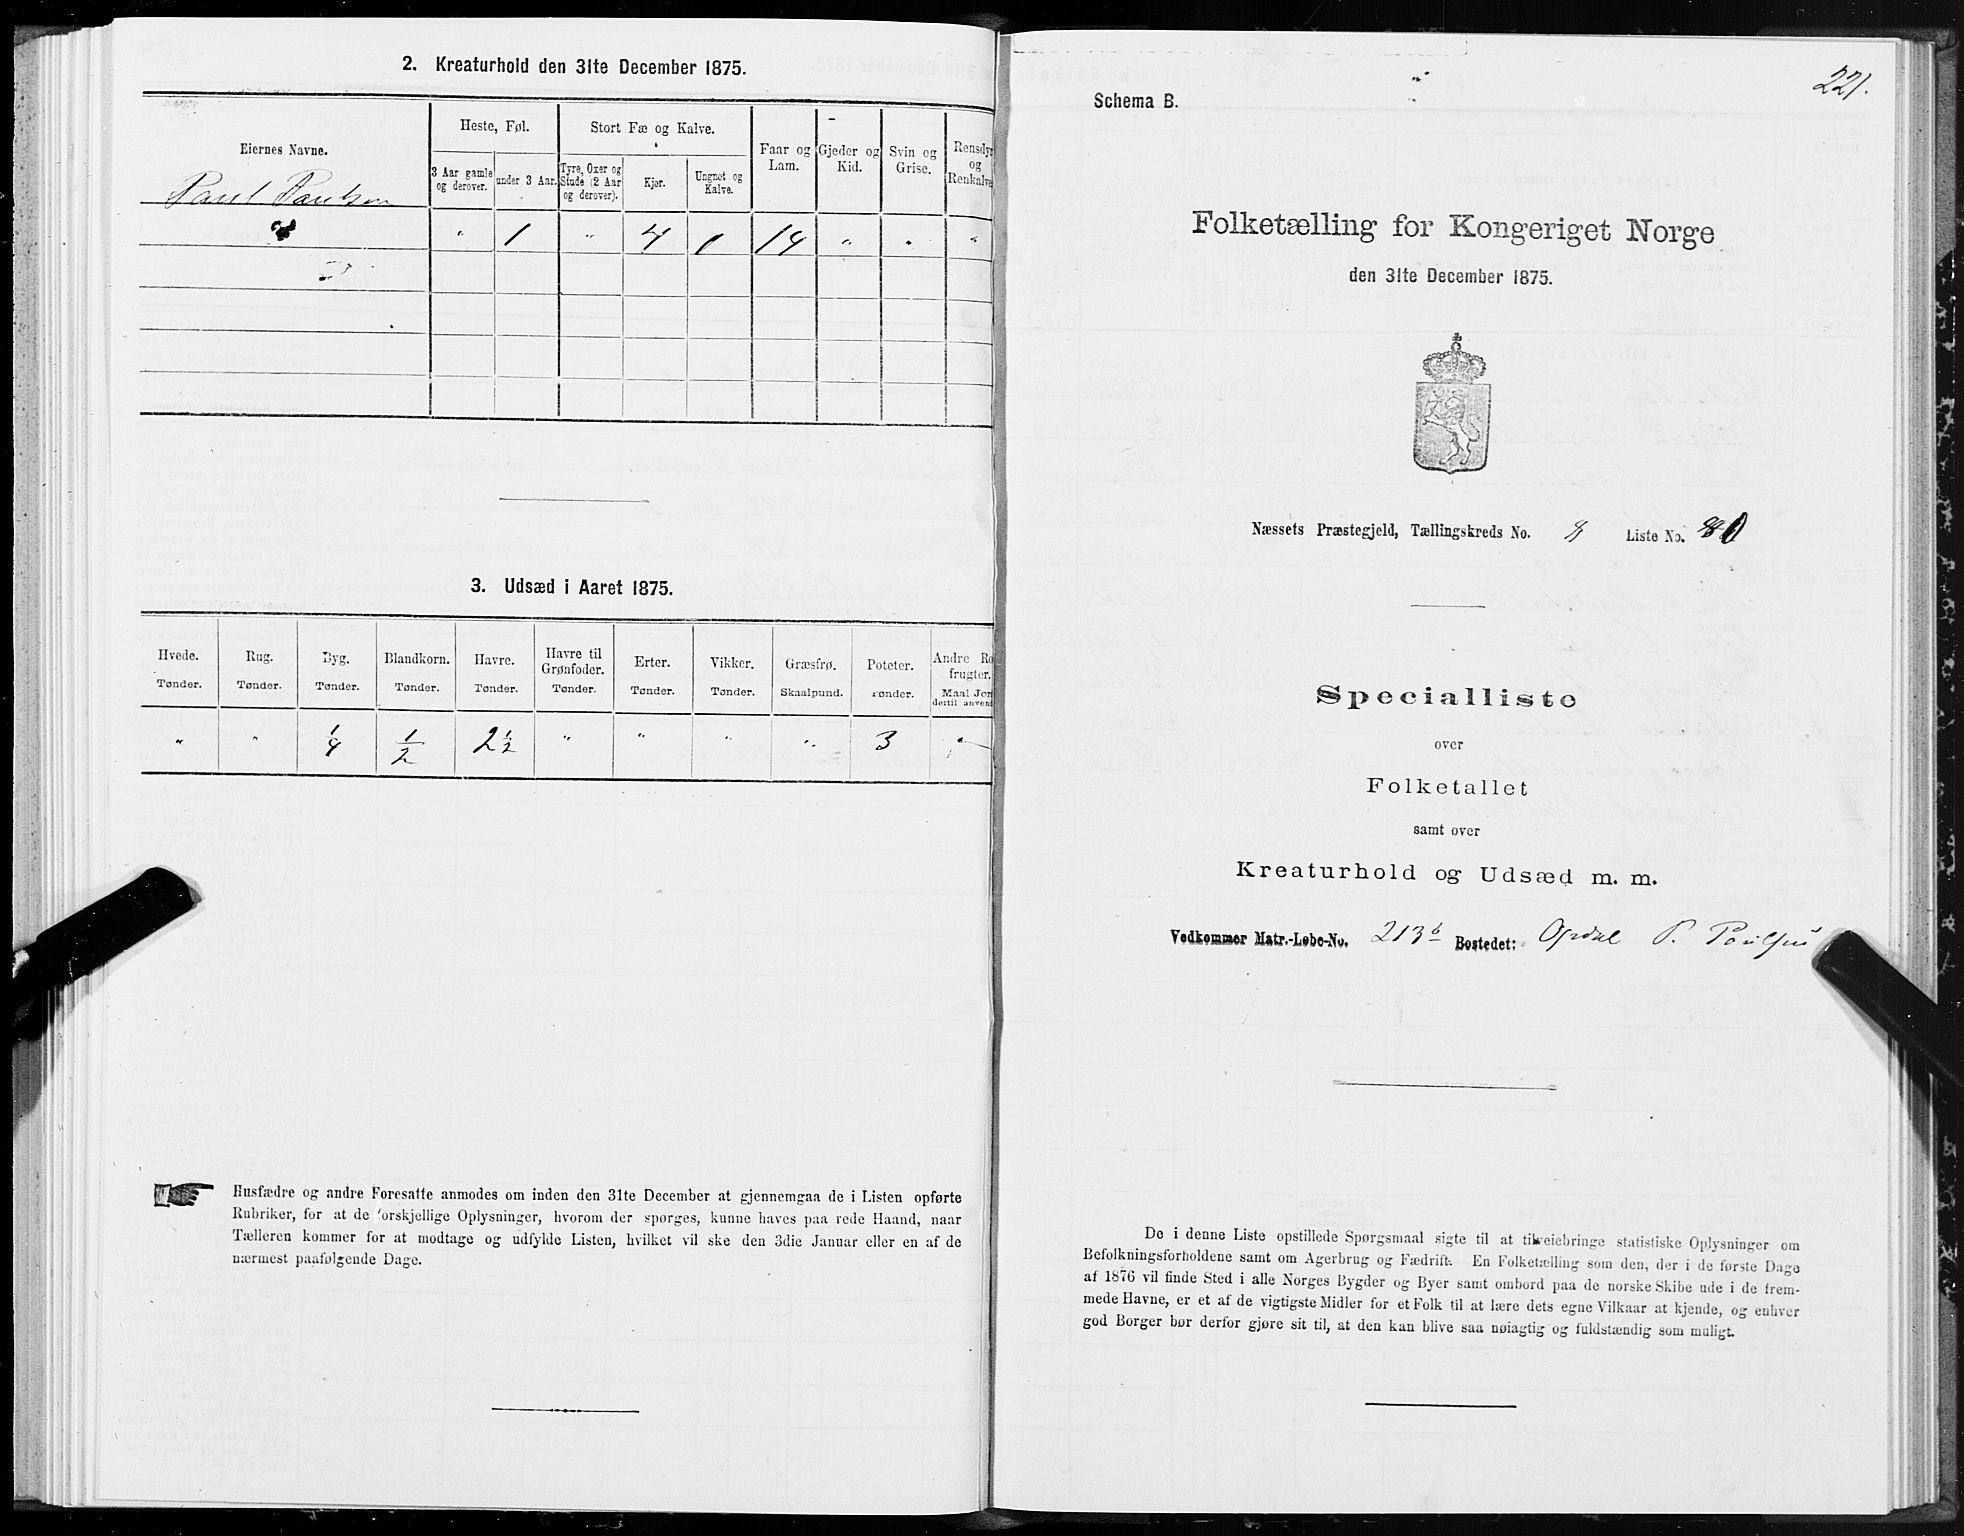 2. Kreaturhold den 31te December 1875.
Eiernes Navne.
Heste, Føl.
Stort Fæ og Kalve.
Faar og Lam.
Gjeder og Kid.
Svin og Grise.
Rensdyr og Renkalve
3 Aar gamle og derover.
under 3 Aar.
Tyre, Oxer og Stude (2 Aar og derover).
Kjør.
Ungnøt og Kalve.
Paul Paulsen
" 1 " 4 1 14 " " "
3. Udsæd i Aaret 1875.
Hvede. Rug. Byg. Blandkorn. Havre. Havre til Grønfoder. Erter. Vikker. Græsfrø. Poteter. Andre Ro frugter.
Tønder. Tønder. Tønder. Tønder. Tønder. Tønder. Tønder. Tønder. Skaalpund. Tønder. Maal Jor dertil anvend
" " 1/4 1/2 2 1/2 " " " " 3 "
Husfædre og andre Foresatte anmodes om inden den 31te December at gjennemgaa de i Listen opførte
Rubriker, for at de forskjellige Oplysninger, hvorom der spørges, kunne haves paa rede Haand, naar
Tælleren kommer for at modtage og udfylde Listen, hvilket vil ske den 3die Januar eller en af de
nærmest paafølgende Dage.
221.
Schema B.
Folketælling for Kongeriget Norge
den 31te December 1875.
Næssets Præstegjeld, Tællingskreds No. 8 Liste No.
Specialliste
over
Folketallet
samt over
Kreaturhold og Udsæd m. m.
Vedkommer Matr.-Løbe-No. 213b Bostedet: Opdal P. Poulsen
De i denne Liste opstillede Spørgsmaal sigte til at tilveiebringe statistiske Oplysninger om
Befolkningsforholdene samt om Agerbrug og Fædrift. En Folketælling som den, der i de første Dage
af 1876 vil finde Sted i alle Norges Bygder og Byer samt ombord paa de norske Skibe ude i de frem-
mede Havne, er et af de vigtigste Midler for et Folk til at lære dets egne Vilkaar at kjende, og enhver
god Borger bør derfor gjøre sit til, at den kan blive saa nøiagtig og fuldstændig som muligt.